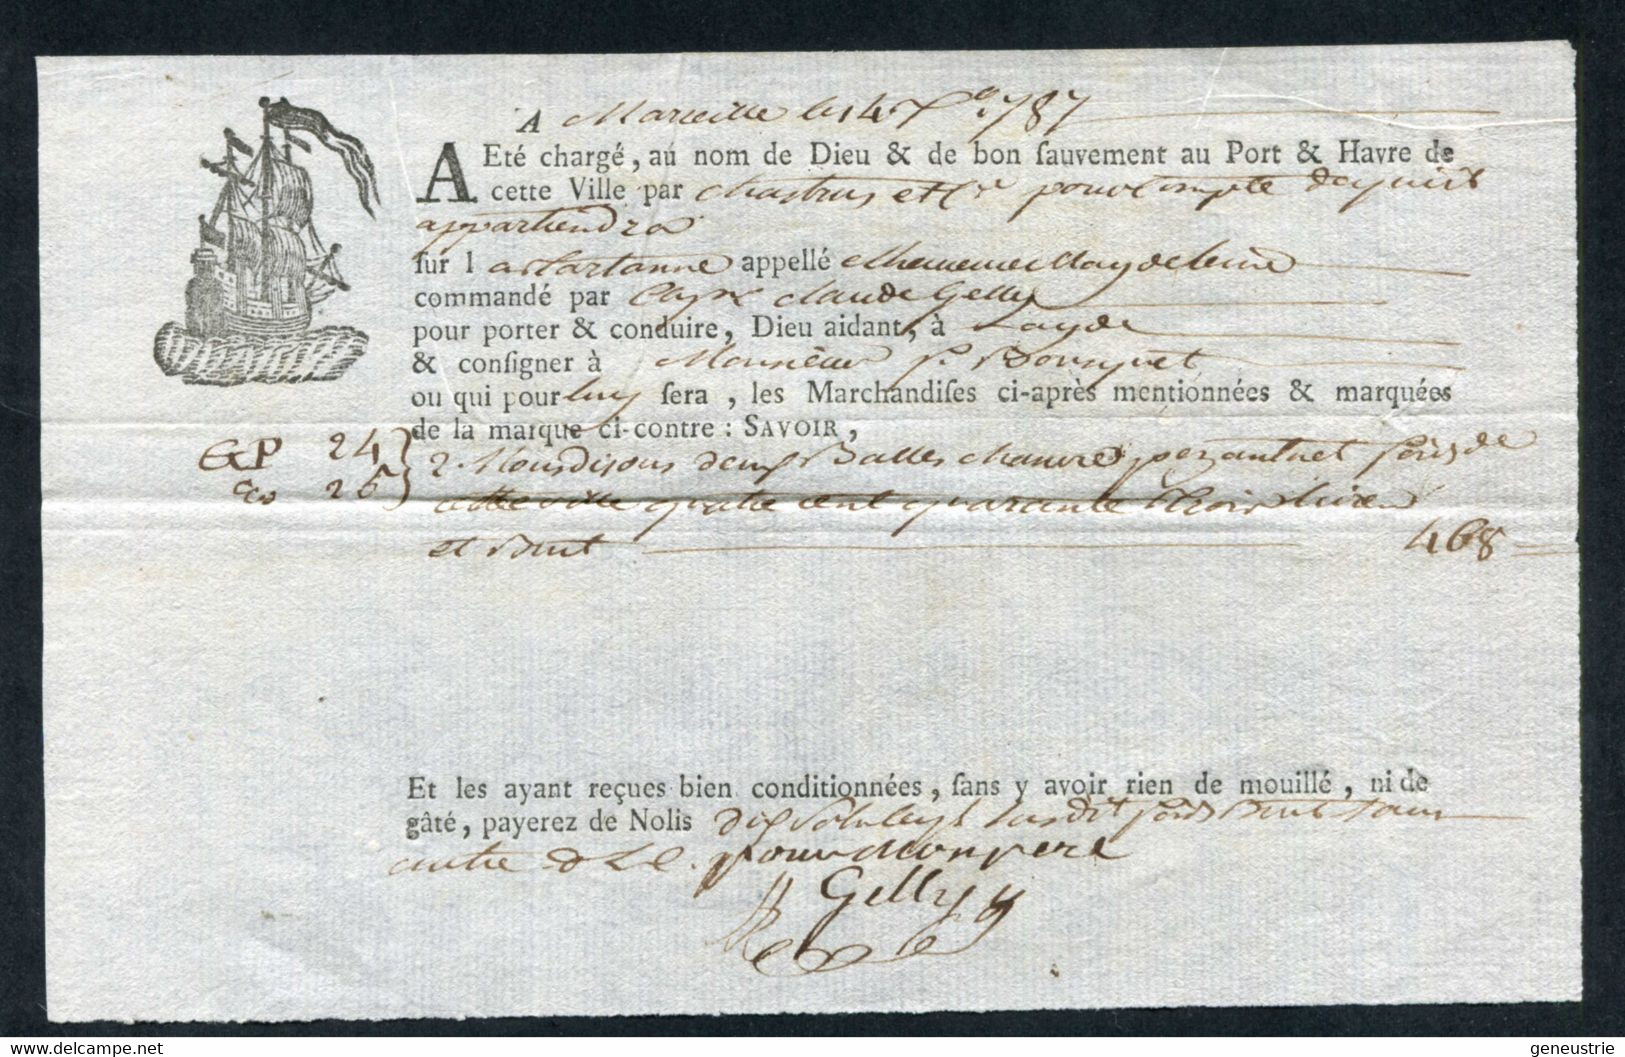 A Marseille le 14 Xbre 1787
A Eté chargé, au nom de Dieu & de bon ſauvement au Port & Havre de
cette Ville par Chastrus et Ce pour Compte de qui il
appartiendra
ſur l a Tartanne appellé Magdeleine
commandé par Cape Claude Gelly
pour porter & conduire, Dieu aidant, à Layde
& conſigner à Monsieur P. Bousquet
ou qui pour luy ſera, les Marchandiſes ci-après mentionnées & marquées
de la marque ci-contre : SAVOIR,
GP 24
do 25
2. Nous disons deux Balles chanvre pezant net poids de
cette ville quatre cent quarante trois livres
et Brut 468
Et les ayant reçues bien conditionnées, ſans y avoir rien de mouillé, ni de
gâté, payerez de Nolis dix sols susdit poids Brut sans
autre pour mon pere
Gelly
www.delcampe.net
geneustrie